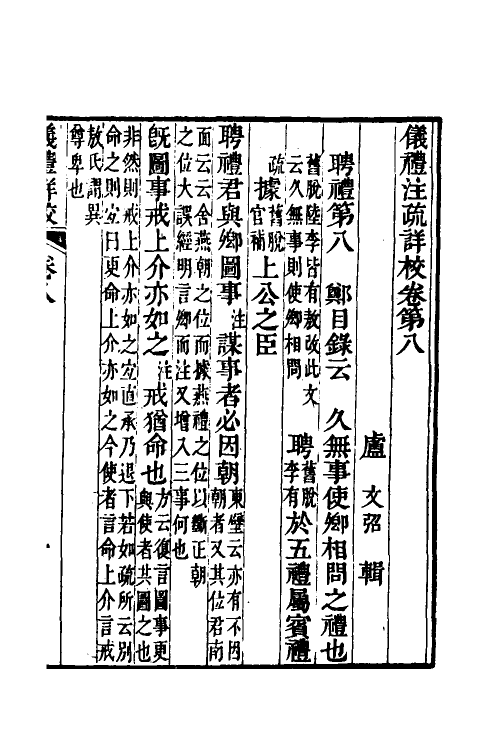 儀禮注疏詳校卷第八
盧文弨輯
聘禮第八　鄭目錄云　久無事使卿相問之禮也
舊脫陸李皆有敖改此文
云久無事則使卿相問
聘
舊脫
李有
於五禮屬賓禮
疏
據
舊脫
官補
上公之臣
聘禮君與卿圖事
注
謀事者必因朝
東壁云亦有不因
朝者又其位君南
面云云舍燕朝之位而據燕禮之位以斷正朝
之位大誤經明言卿而注又增入三事何也
旣圖事戒上介亦如之
注
戒猶命也
方云復言圖事更
與使者共圖之也
非然則戒上介亦如之宜直承乃退下若如疏所云別
命之則宜曰更命上介亦如之今使者言命上介言戒
敖氏謂異
尊卑也
儀禮詳校　卷八